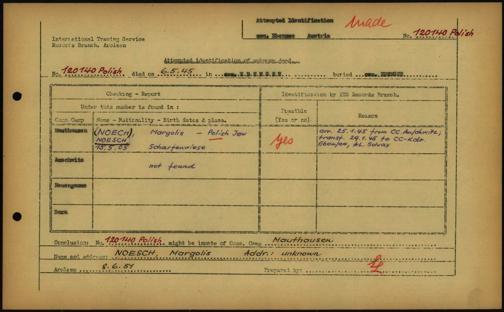 Attempted Identification
made
com. Ebensee Austria
No. 120140 Polish
International Tracing Service
Records Branch, Arolsen
Attempted identification of unknown dead.
No. 120140 Polish died on 6.5.45 in com. EBENSEE buried com. EBENSEE
Checking - Report
Identification by ITS Records Branch.
Under this number is found in :
Possible
(Yes or no)
Reason
Conc Camp Name - Nationality - Birth date & place.
Mauthausen
(NOECH) Margolis - Polish Jew
NOESCH
15.5.05 Scharfenwiese
Yes
arr. 25.1.45 from CC Auschwitz,
transf. 29.1.45 to CC-Kdo.
Ebensee, AL. Solvay
Auschwitz
not found
Neuengamme
Dora
Conclusion: No. 120140 Polish might be inmate of Conc. Camp Mauthausen
Name and address: NOESCH, Margolis Addr.: unknown
Arolsen 8.6.51 Prepared by: